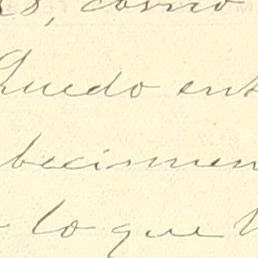 como
Quedo ent
becimien
lo que